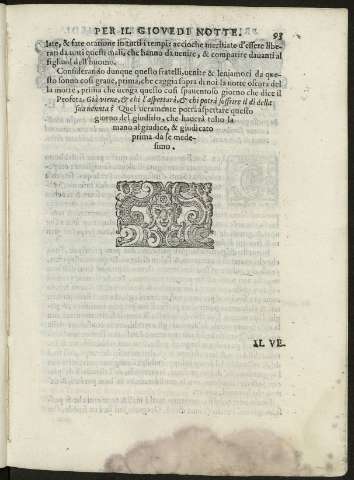 PER IL GIOVEDI NOTTE. 93
late, & fate oratione in tutti i tempi: accioche meritiate d'essere libe-
rati da tutti questi mali, che hanno da uenire, & comparire dauanti al
figliuol dell'huomo.
Considerando dunque questo fratelli, uenite & leuiamoci da que-
sto sonno così graue, prima, che caggia sopra di noi la notte oscura del
la morte, prima che uenga questo così spauentoso giorno che dice il
Profeta. Già viene, & chi l'aspettarà, & chi potrà soffrire il dì della
sua venuta? Quel ueramente potrà aspettare questo
giorno del giuditio, che hauerà tolto la
mano al giudice, & giudicato
prima da se mede-
simo.
IL VE-